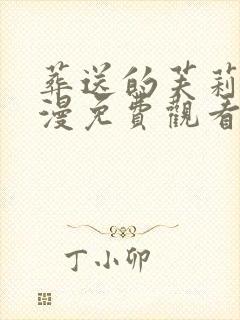 葬送的芙莉
漫免費觀看
丁小卯